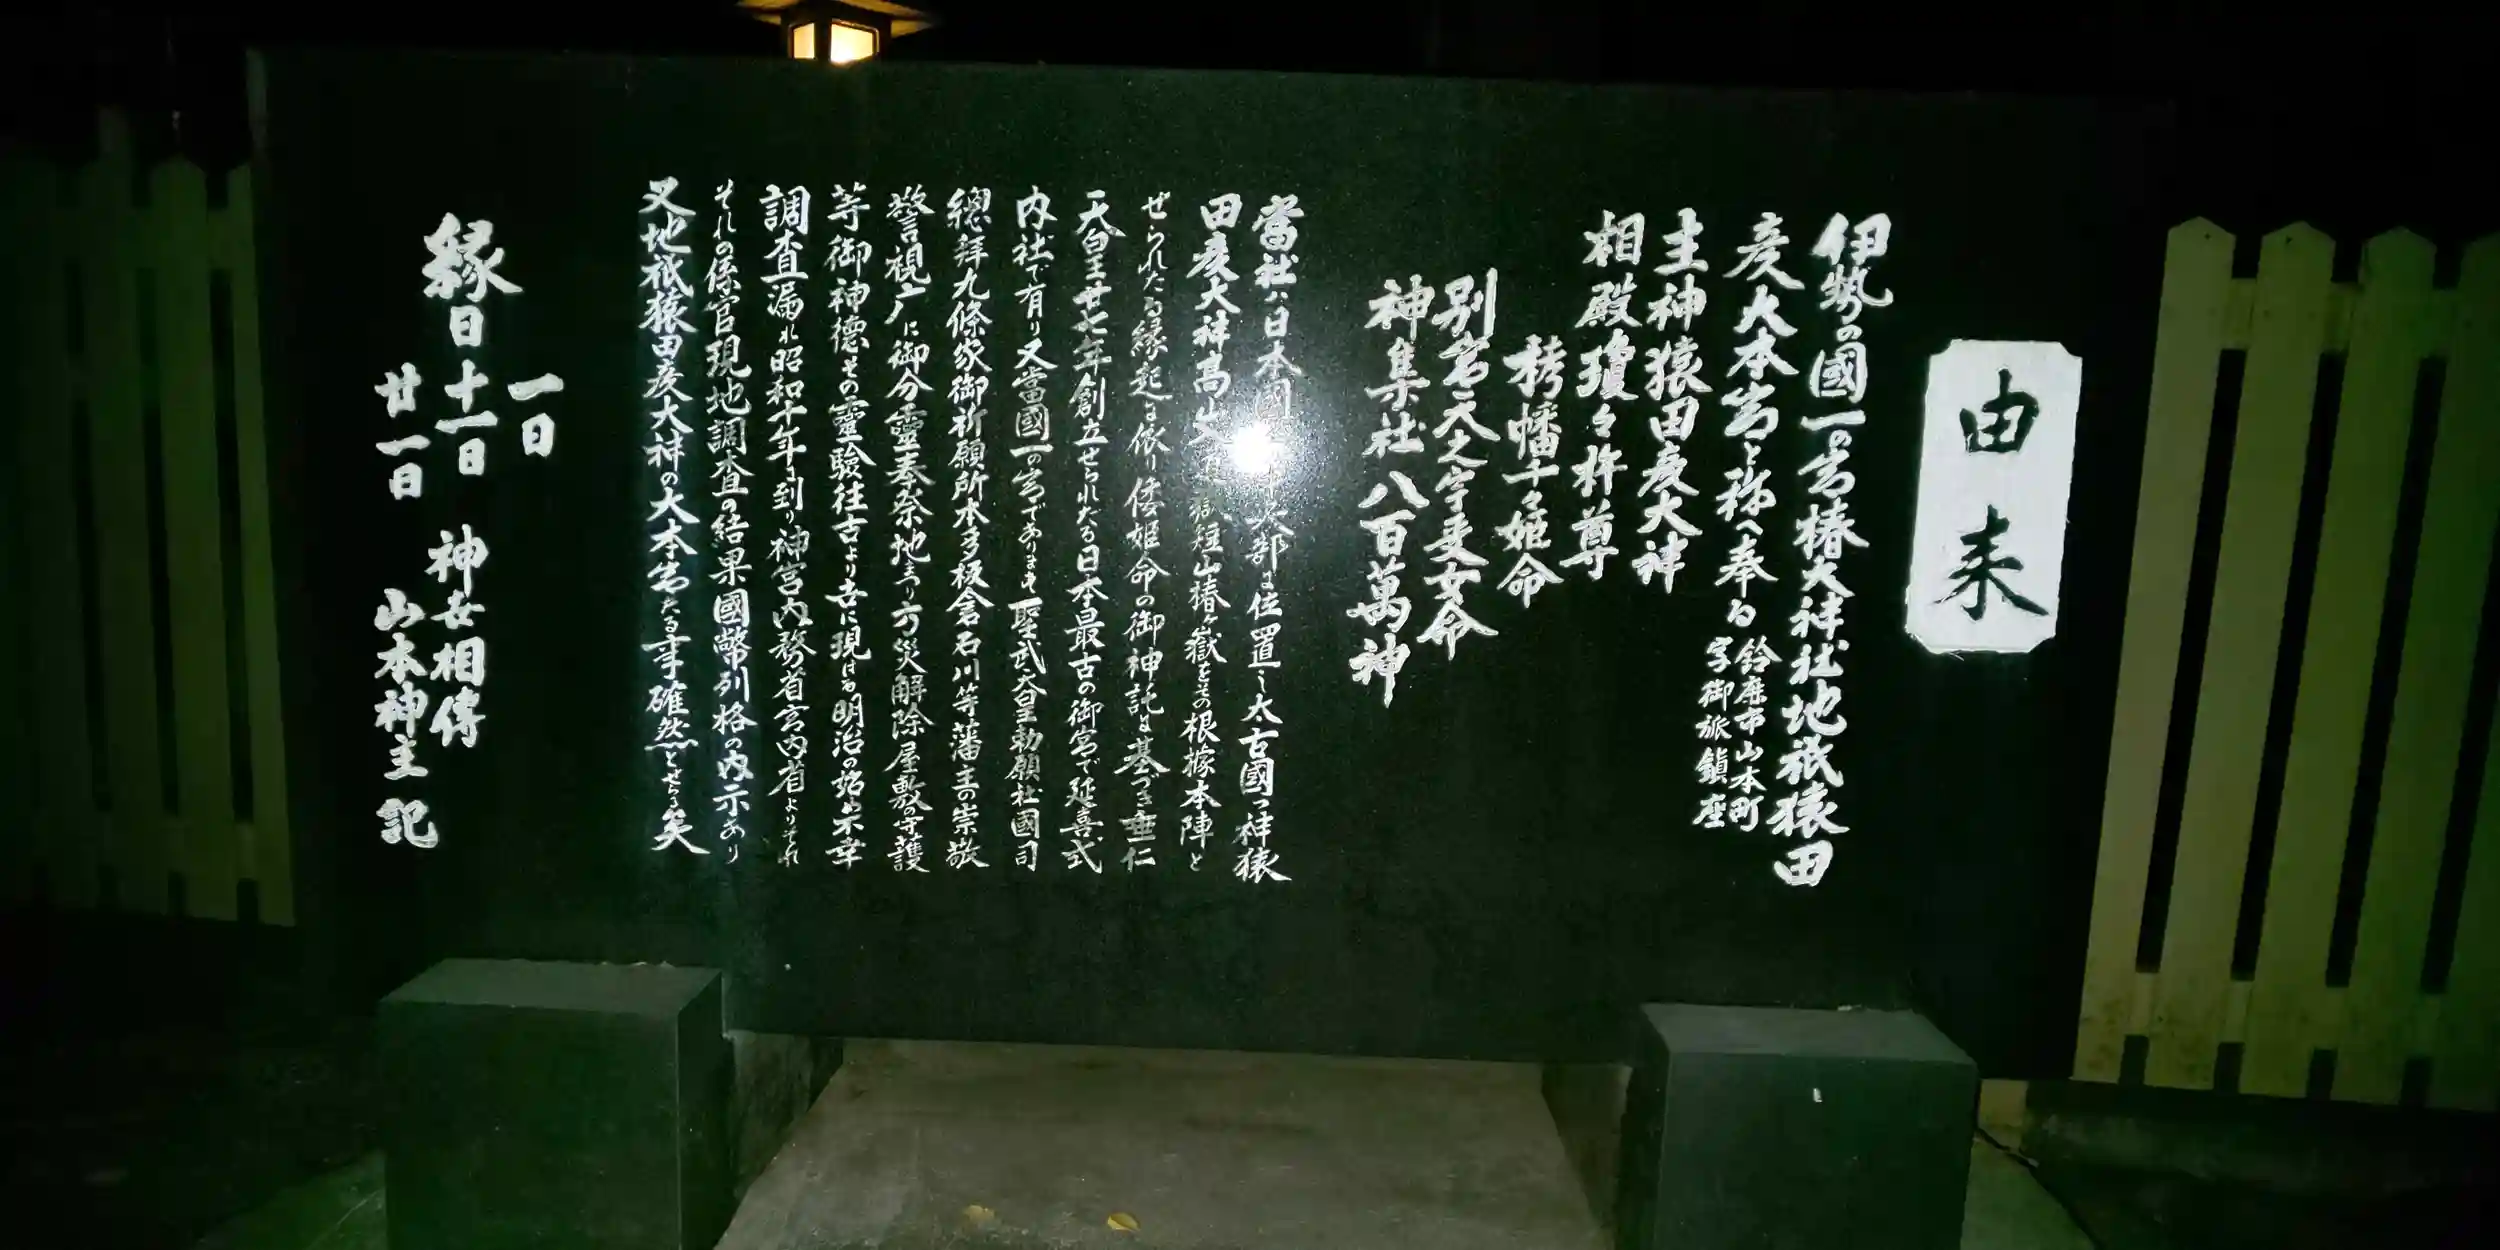 由来
伊勢の國一の宮椿大神社地祇猿田
彦大本宮と称へ奉る
鈴鹿市山本町
字御旅鎮座
主神猿田彦大神
相殿瓊々杵尊
栲幡千々姫命
別宮天之宇受女命
神集社八百萬神
當社ハ日本國 部に位置し太古國つ神猿
田彦大神高 短山椿ヶ嶽をその根據本陣と
せられたる縁起に依り倭姫命の御神託に基づき垂仁
天皇廿七年創立せられたる日本最古の御宮で延喜式
内社で有り又當國一の宮であります聖武天皇勅願社國司
總拜九條家御祈願所本多板倉石川等藩主の崇敬
警視庁に御分靈奉祭地まつり方災解除屋敷の守護
等御神徳その靈験往古より世に現はる明治の始め不幸
調査漏れ昭和十年に到り神宮内務省宮内省よりそれ
それの係官現地調査の結果國幣列格の内示あり
又地祇猿田彦大神の大本宮たる事確然とせらる矣
一日
縁日十一日 神女相傳
廿一日 山本神主 記